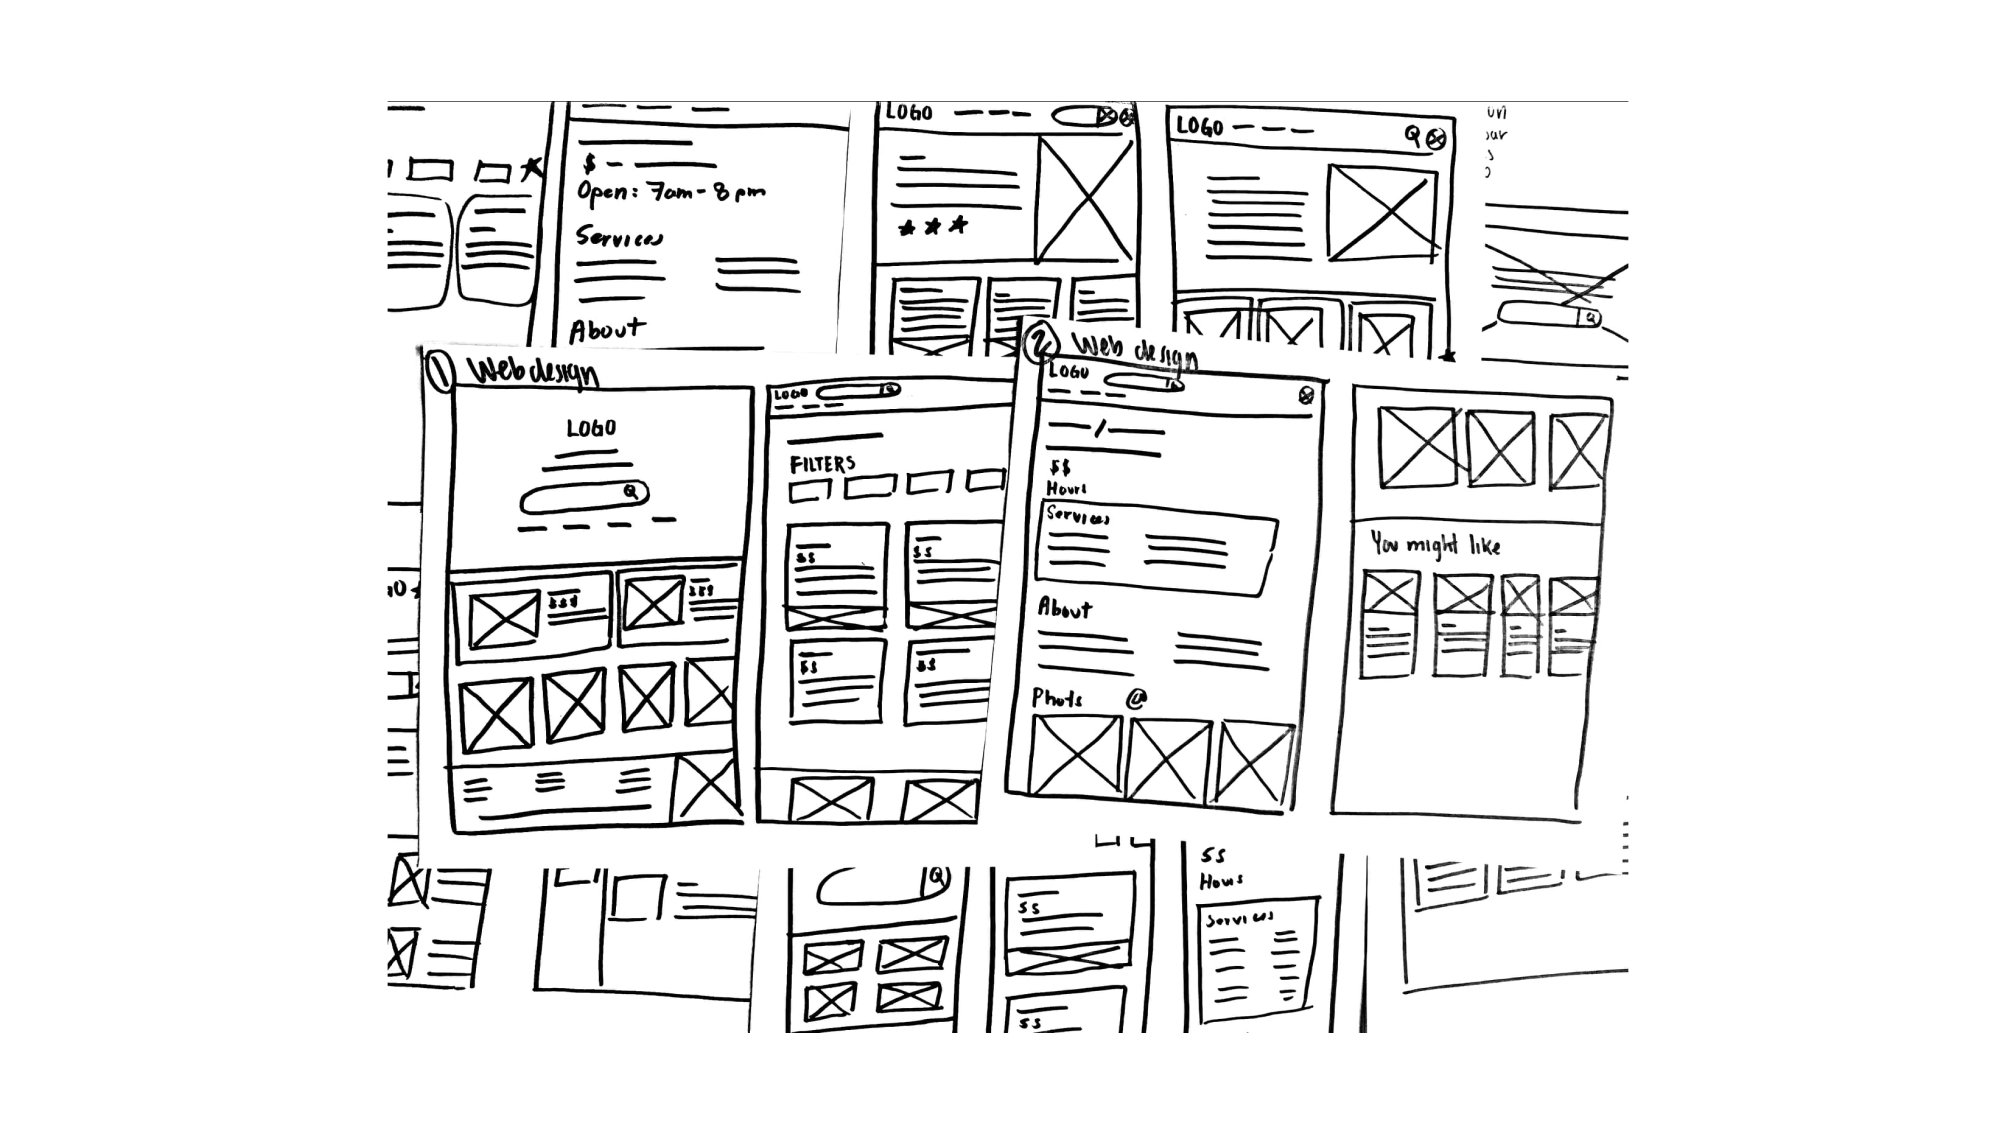 LOGO
LOGO
$
Open: 7am - 8pm
Services
About
1 Web design
LOGO
LOGO
FILTERS
$$$
$$$
$$
$$
$$
$$
2 Web design
LOGO
$$
Hours
Services
About
Phots
You might like
$$
$$
$$
Hours
Services